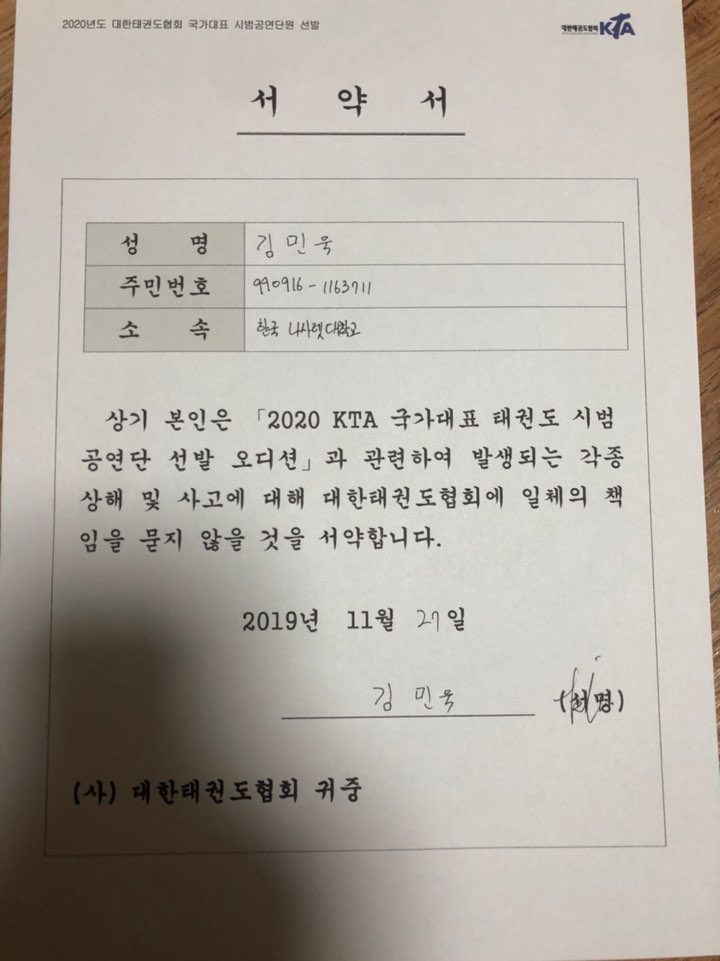 2020년도 대한태권도협회 국가대표 시범공연단원 선발
대한태권도협회 KTA
서 약 서
성 명 김민욱
주민번호 990916-1163711
소 속 한국 나사렛대학교
상기 본인은 「2020 KTA 국가대표 태권도 시범
공연단 선발 오디션」과 관련하여 발생되는 각종
상해 및 사고에 대해 대한태권도협회에 일체의 책
임을 묻지 않을 것을 서약합니다.
2019년 11월 27일
김민욱 (서명)
(사) 대한태권도협회 귀중